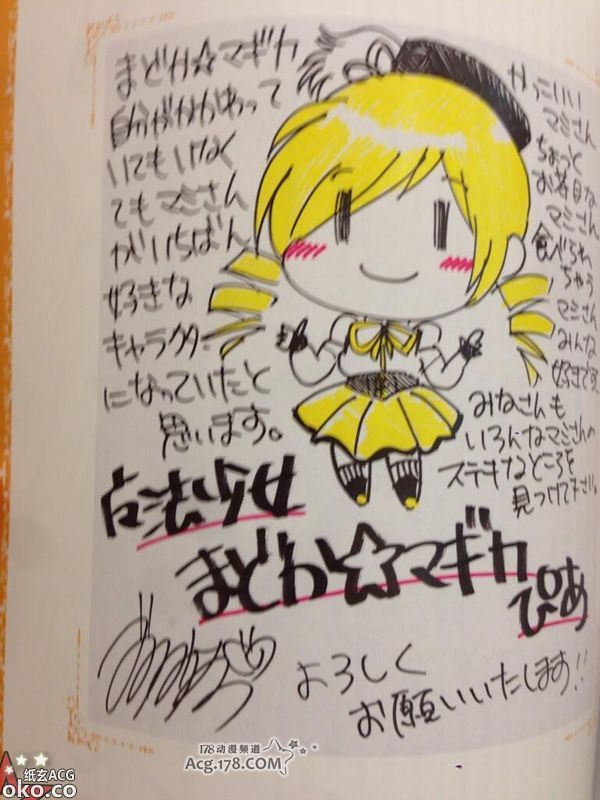 まどか☆マギカ
自分がかかわって
いてもいなく
てもマミさん
がいちばん
好きな
キャラクター
になっていたと
思います。
かっこいい
マミさん
ちょっと
お茶目な
マミさん
食べられ
ちゃう
マミさん
みんな
好きです
みなさんも
いろんなマミさんの
ステキなどころを
見つけて下さい。
魔法少女
まどか☆マギカ
ぴあ
よろしく
お願いいたします!!
178动漫频道
Acg.178.COM
纸玄ACG
oko.co